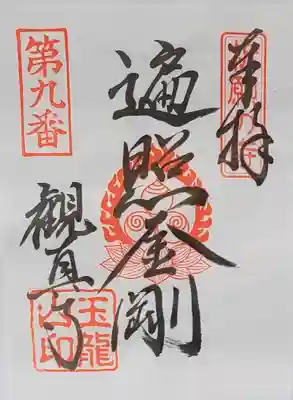 奉拝
遍照金剛
觀真寺
第九番
玉龍
山印